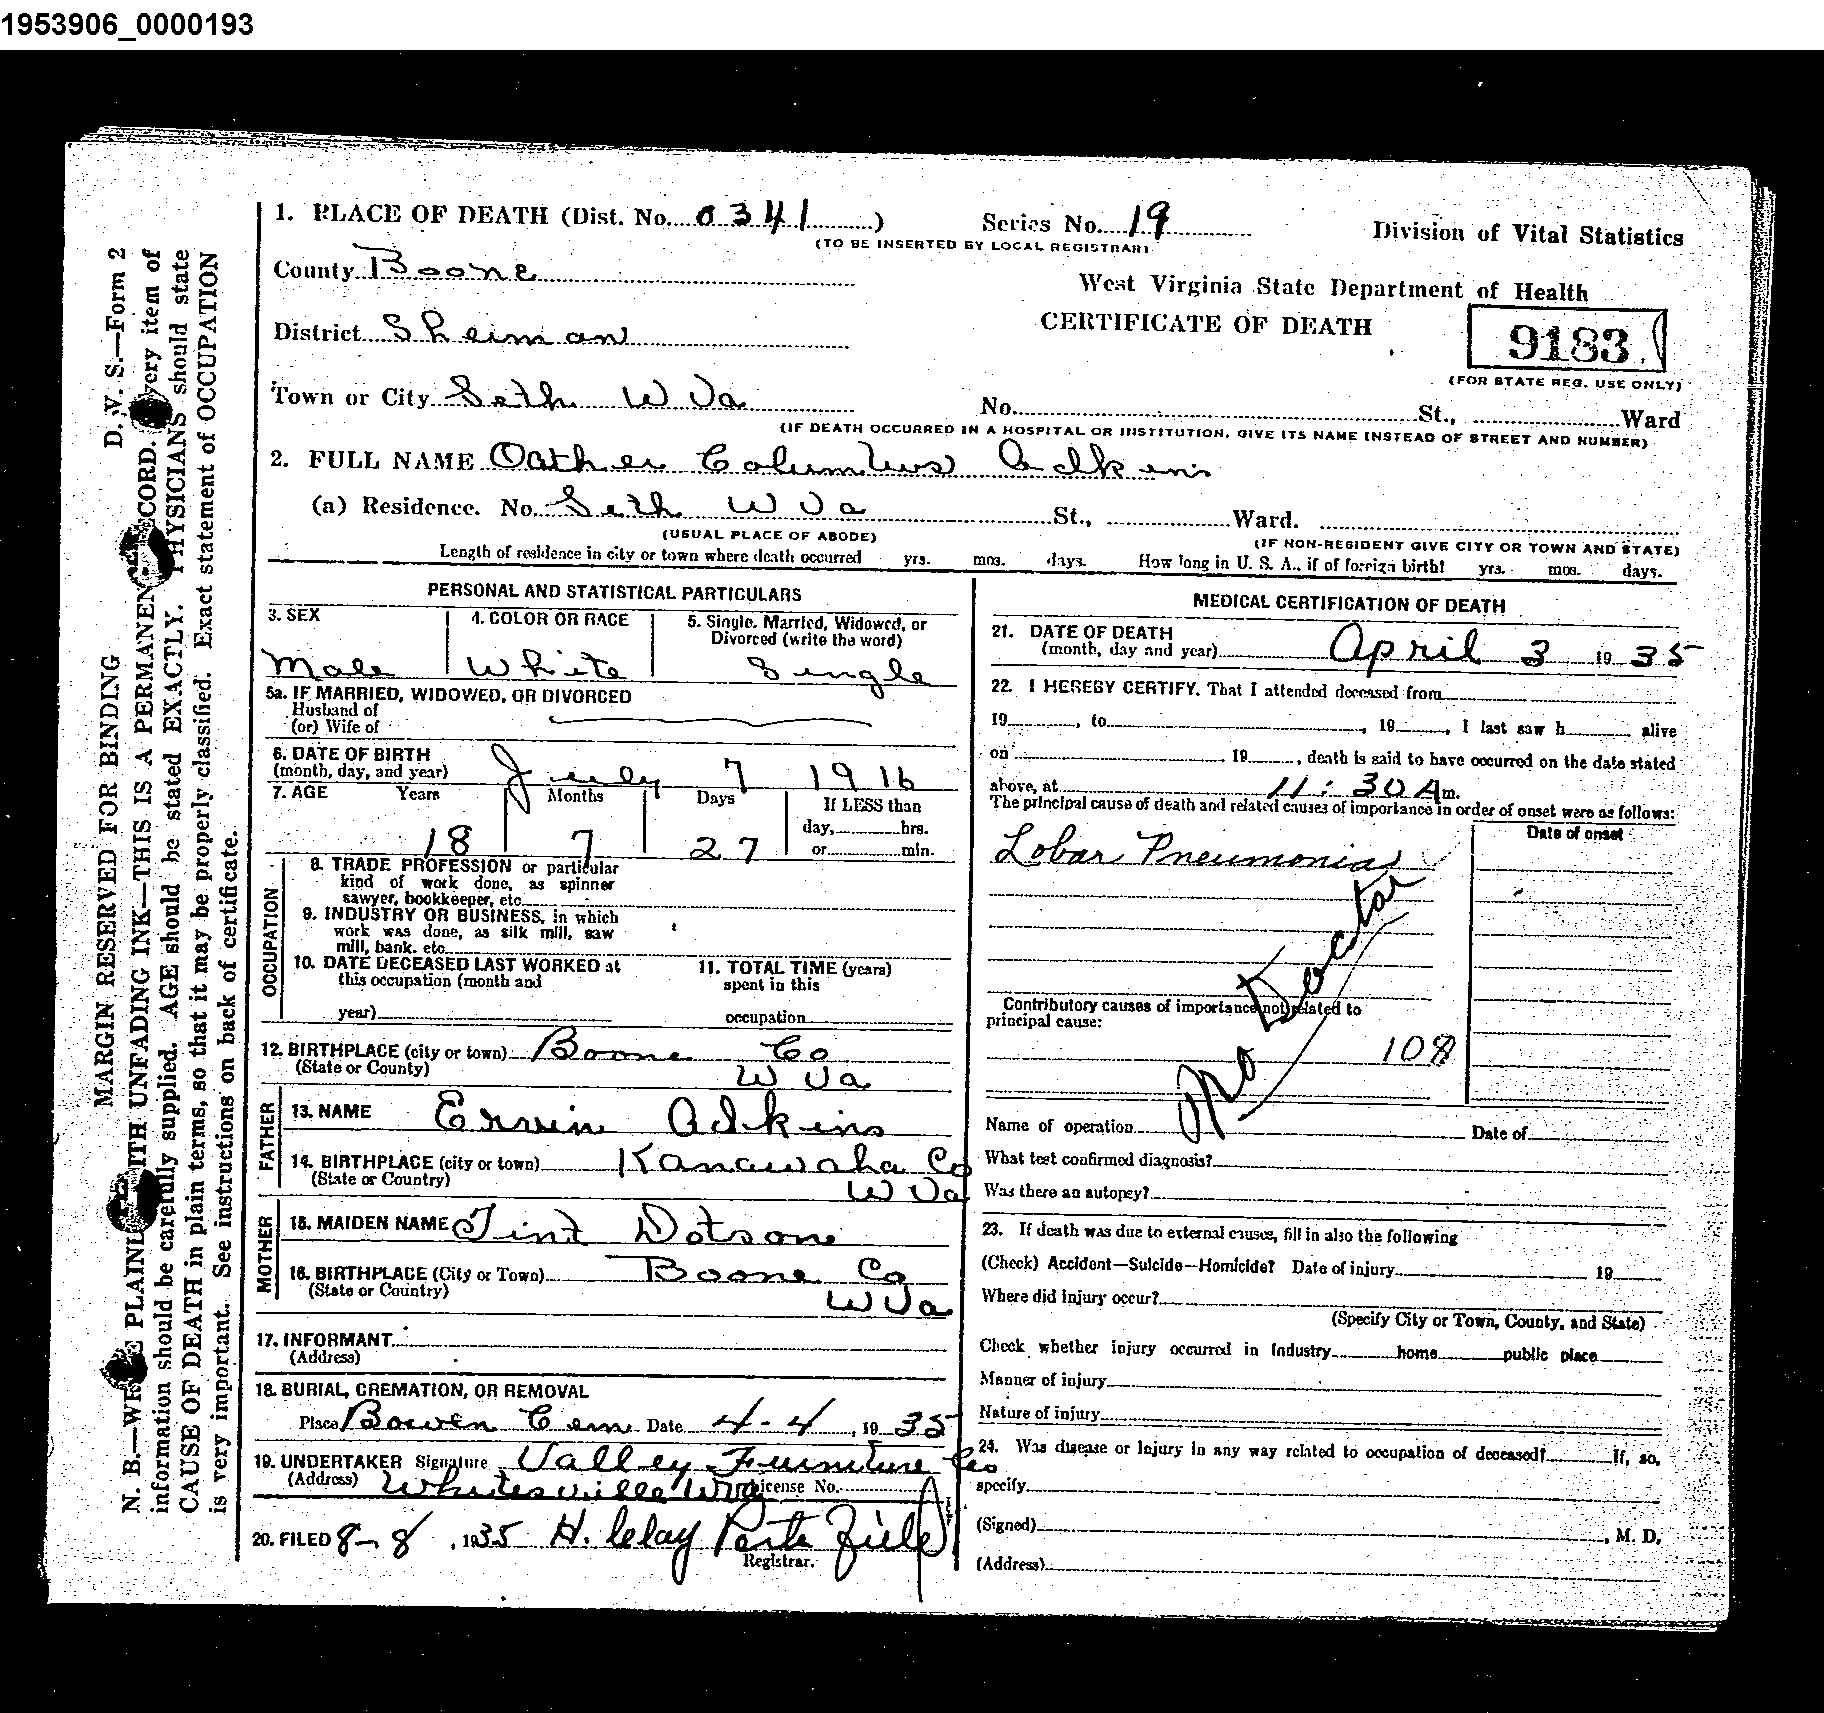 1953906_0000193
MARGIN RESERVED FOR BINDING D. V. S.—Form 2
N. B.—WRITE PLAINLY WITH UNFADING INK—THIS IS A PERMANENT RECORD. Every item of
information should be carefully supplied. AGE should be stated EXACTLY. PHYSICIANS should state
CAUSE OF DEATH in plain terms, so that it may be properly classified. Exact statement of OCCUPATION
is very important. See instructions on back of certificate.
1. PLACE OF DEATH (Dist. No. 0341) Series No. 19
(TO BE INSERTED BY LOCAL REGISTRAR)
Division of Vital Statistics
County Boone
West Virginia State Department of Health
CERTIFICATE OF DEATH
9183
(FOR STATE REG. USE ONLY)
District Sherman
Town or City Seth W Va No. St., Ward
(IF DEATH OCCURRED IN A HOSPITAL OR INSTITUTION, GIVE ITS NAME INSTEAD OF STREET AND NUMBER)
2. FULL NAME Oather Columbus Adkins
(a) Residence. No. Seth W Va St., Ward.
(USUAL PLACE OF ABODE) (IF NON-RESIDENT GIVE CITY OR TOWN AND STATE)
Length of residence in city or town where death occurred yrs. mos. days. How long in U. S. A., if of foreign birth? yrs. mos. days.
PERSONAL AND STATISTICAL PARTICULARS
3. SEX 4. COLOR OR RACE 5. Single, Married, Widowed, or
Divorced (write the word)
Male White Single
5a. IF MARRIED, WIDOWED, OR DIVORCED
Husband of
(or) Wife of
6. DATE OF BIRTH
(month, day, and year) July 7 1916
7. AGE Years Months Days If LESS than
day, hrs.
or min.
18 7 27
OCCUPATION
8. TRADE PROFESSION or particular
kind of work done, as spinner
sawyer, bookkeeper, etc.
9. INDUSTRY OR BUSINESS, in which
work was done, as silk mill, saw
mill, bank, etc.
10. DATE DECEASED LAST WORKED at
this occupation (month and
year)
11. TOTAL TIME (years)
spent in this
occupation
12. BIRTHPLACE (city or town) Boone Co
(State or County) W Va
FATHER
13. NAME Ervin Adkins
14. BIRTHPLACE (city or town) Kanawaha Co
(State or Country) W Va
MOTHER
15. MAIDEN NAME Tint Dotson
16. BIRTHPLACE (City or Town) Boone Co
(State or Country) W Va
17. INFORMANT
(Address)
18. BURIAL, CREMATION, OR REMOVAL
Place Bowen Cem Date 4-4, 1935
19. UNDERTAKER Signature Valley Furniture Co
(Address) Whitesville W Va License No.
20. FILED 8-8, 1935 H. Clay Porterfield
Registrar.
MEDICAL CERTIFICATION OF DEATH
21. DATE OF DEATH
(month, day and year) April 3 1935
22. I HEREBY CERTIFY, That I attended deceased from
19, to, 19, I last saw h alive
on 19, death is said to have occurred on the date stated
above, at 11:30 A m.
The principal cause of death and related causes of importance in order of onset were as follows:
Date of onset
Lobar Pneumonia
No Doctor
Contributory causes of importance not related to
principal cause:
108
Name of operation Date of
What test confirmed diagnosis?
Was there an autopsy?
23. If death was due to external causes, fill in also the following
(Check) Accident—Suicide—Homicide? Date of injury 19
Where did injury occur?
(Specify City or Town, County, and State)
Check whether injury occurred in Industry home public place
Manner of injury
Nature of injury
24. Was disease or injury in any way related to occupation of deceased? If, so,
specify
(Signed) , M. D.
(Address)